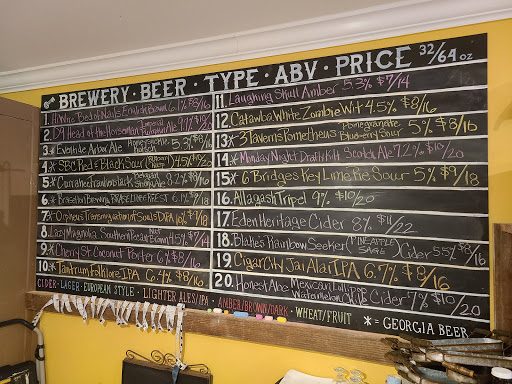 BREWERY · BEER · TYPE · ABV · PRICE 32/64 oz
1. Hi Wire Bed of Nails English Brown 6.1% $8/16
2. D9 Head of the Horseman Imperial Pumpkin Ale 9% $10/20
3.* Eventide Arbor Ale 5.3% $8/16
4.* SBC Red & Black Sour 4.5% $
5.* Belgian Strong Ale 8.2% $8/16
6.* 6.1% $8/16
7.* Orpheus Transmigration of Souls DIPA 10% $9/18
8. Lazy Magnolia Southern Pecan Nut Brown 4.5% $7/14
9.* Cherry St Coconut Porter 6% $8/16
10.* Tantrum Folklore IPA 6.4% $8/16
11. Laughing Skull Amber 5.3% $7/14
12. Catawba White Zombie Wit 4.5% $8/16
13.* 3 Taverns Prometheus Pomegranate Blueberry Sour 5% $8/16
14.* Monday Night Drafty Kilt Scotch Ale 7.2% $10/20
15.* 6 Bridges Key Lime Pie Sour 5% $9/18
16. Allagash Tripel 9% $10/20
17. Eden Heritage Cider 8% $11/22
18. Blakes Rainbow Seeker (PINEAPPLE SAGE) Cider 5.5% $8/16
19. Cigar City Jai Alai IPA 6.7% $8/16
20. Honest Abe Mexican Lollipop Watermelon Chile Cider 7% $10/20
CIDER · LAGER · EUROPEAN STYLE · LIGHTER ALES/IPA · AMBER/BROWN/DARK · WHEAT/FRUIT * = GEORGIA BEER